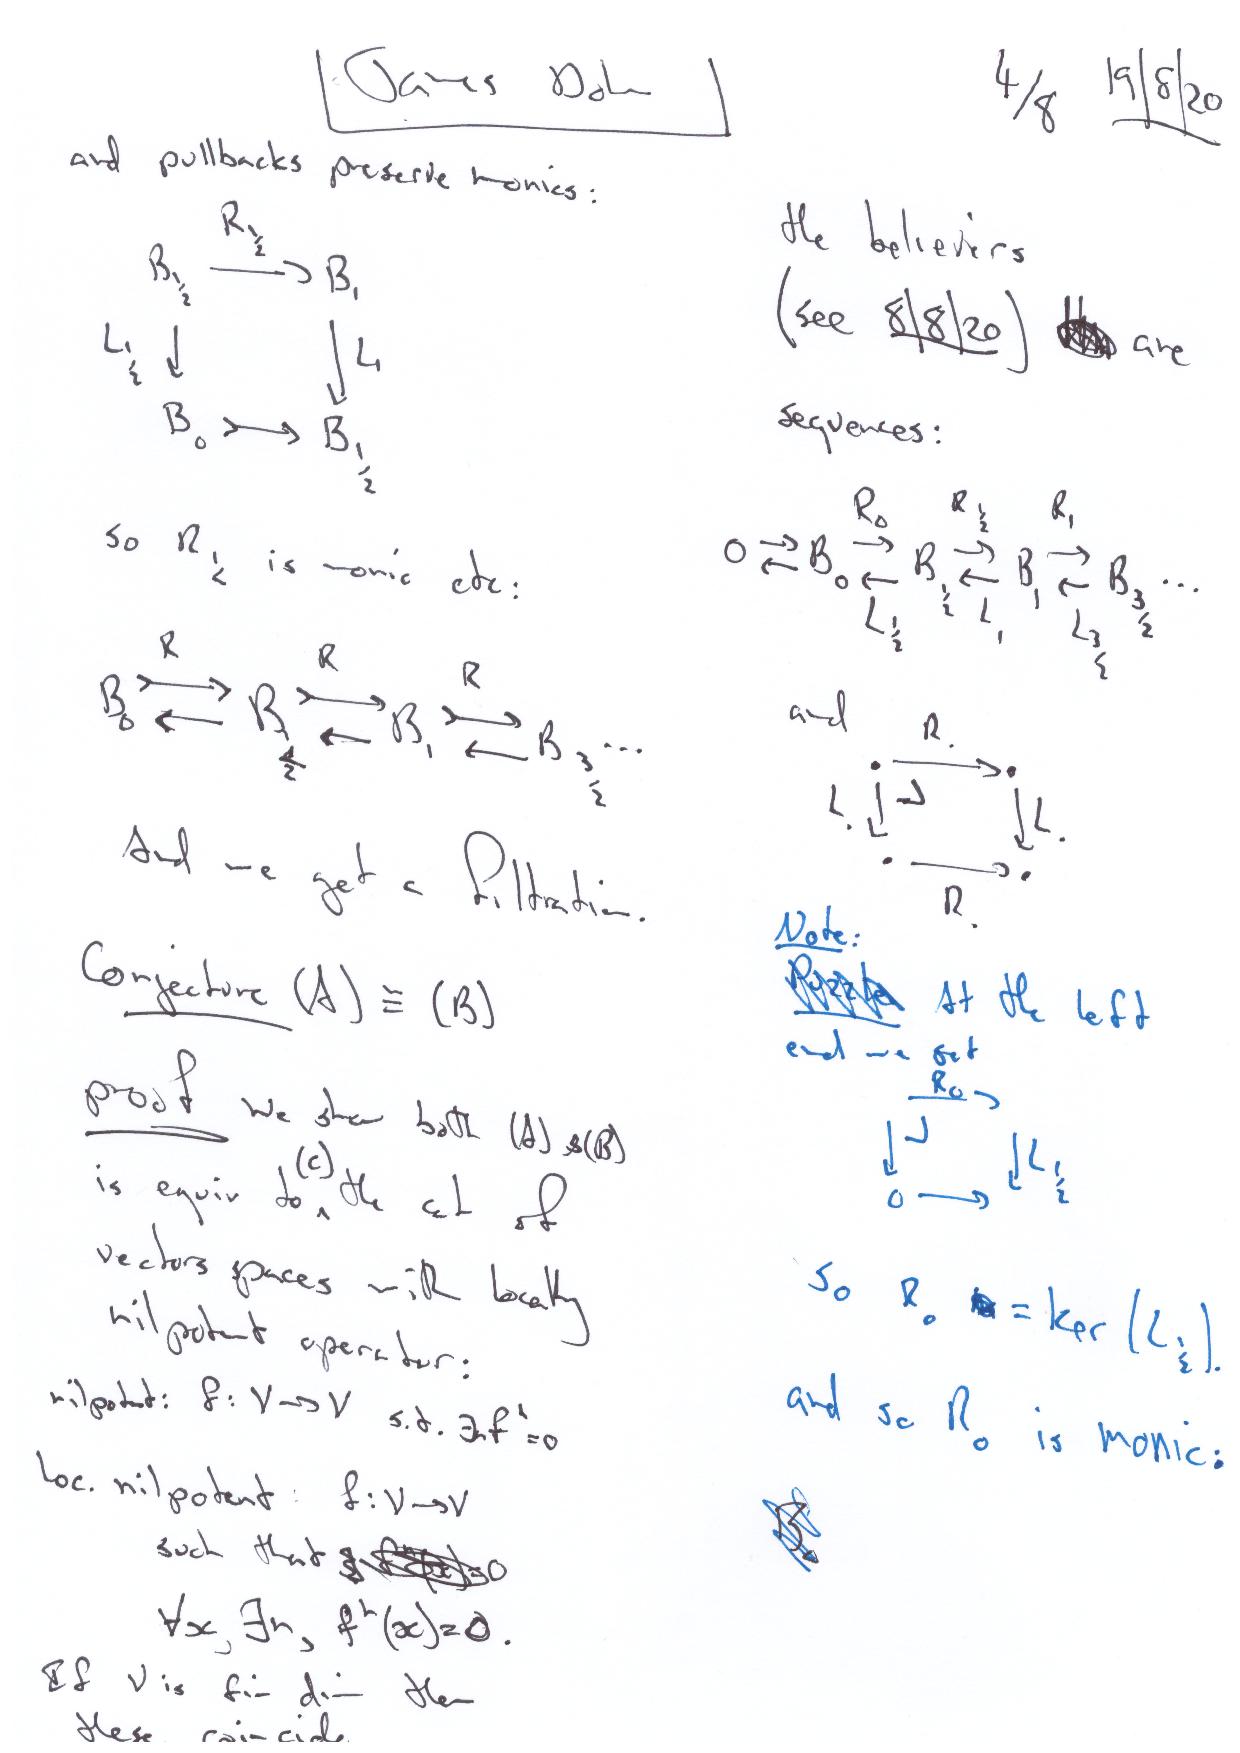 James Dolan
4/8 19/8/20
and pullbacks preserve monics:
B_{1/2} R_{1/2} → B_1
L_{1/2} ↓ ↓ L_1
B_0 ↣ B_{1/2}
so R_{1/2} is monic etc:
R R R
B_0 ⇄ B_{1/2} ⇄ B_1 ⇄ B_{3/2} ...
And we get a filtration.
Conjecture (A) ≅ (B)
proof We show both (A) & (B)
is equiv to (C) the cat of
vectors spaces with locally
nilpotent operator:
nilpotent: f: V → V s.t. ∃n f^n = 0
Loc. nilpotent: f: V → V
such that
∀x, ∃n, f^n(x) = 0.
If V is fin dim then
these coincide
the believers
(see 8/8/20) are
sequences:
R_0 R_{1/2} R_1
0 ⇄ B_0 ⇄ B_{1/2} ⇄ B_1 ⇄ B_{3/2} ...
L_{1/2} L_1 L_{3/2}
and
R.
L. ↓ ↓ L.
R.
Note:
At the left
end we get
R_0 →
↓ ↓ L_{1/2}
0 →
So R_0 = ker (L_{1/2}).
and so R_0 is monic: